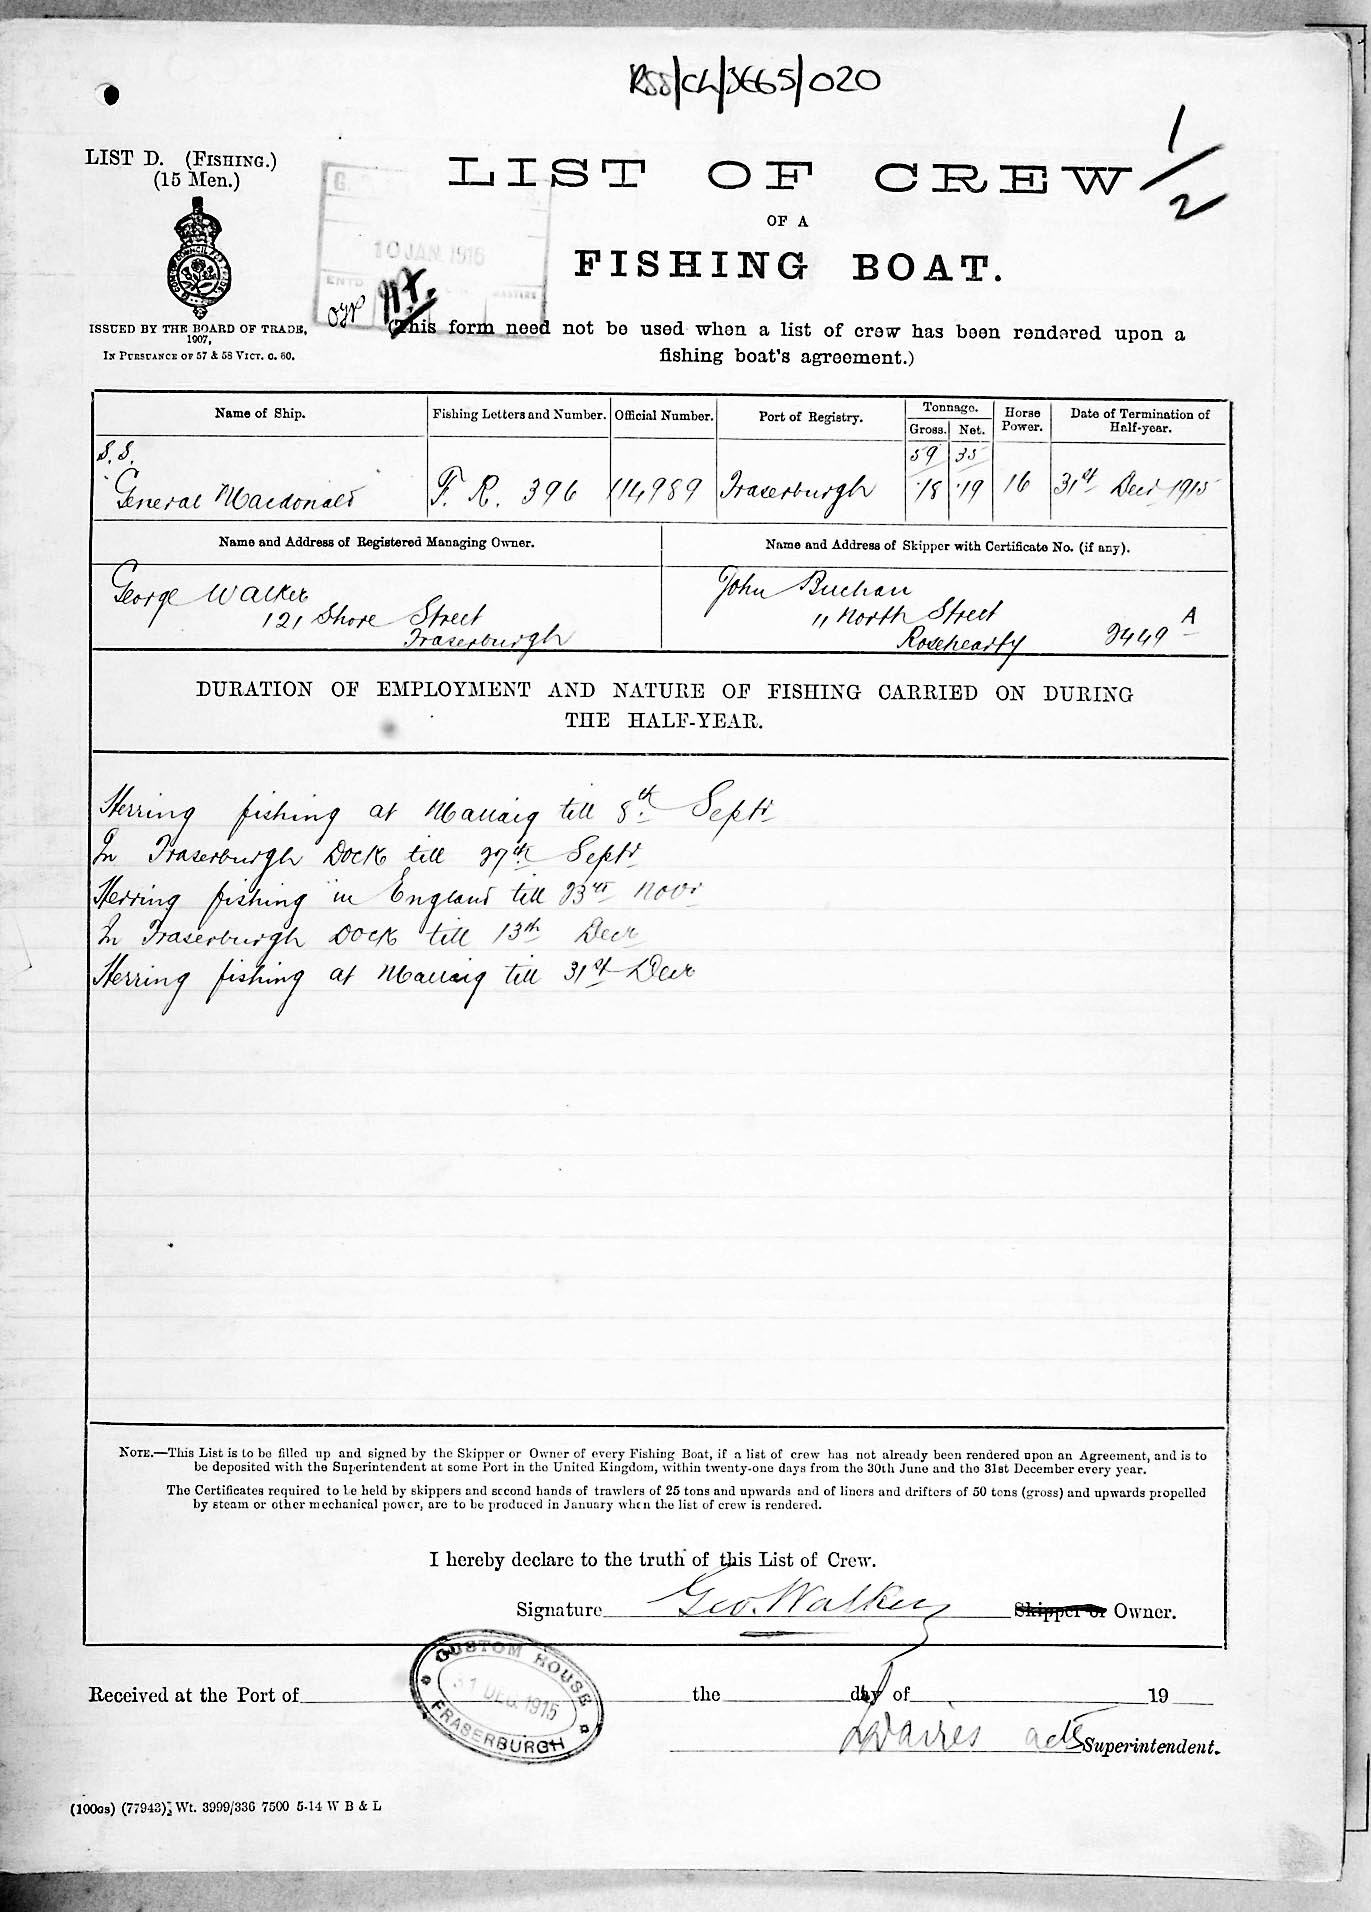 RSS/CL/3665/020
1/2
LIST D. (FISHING.)
(15 Men.)
LIST OF CREW
OF A
FISHING BOAT.
10 JAN. 1916
ENTD.
ISSUED BY THE BOARD OF TRADE,
1907,
IN PURSUANCE OF 57 & 58 VICT. C. 60.
(This form need not be used when a list of crew has been rendered upon a
fishing boat's agreement.)
Name of Ship. Fishing Letters and Number. Official Number. Port of Registry. Tonnage. Gross. Net. Horse Power. Date of Termination of Half-year.
S.S. 59 35
General Macdonald F. R. 396 114989 Fraserburgh .18 .19 16 31st Decr 1915
Name and Address of Registered Managing Owner. Name and Address of Skipper with Certificate No. (if any).
George Walker John Buchan
121 Shore Street 11 North Street
Fraserburgh Rosehearty 9449 A
DURATION OF EMPLOYMENT AND NATURE OF FISHING CARRIED ON DURING
THE HALF-YEAR.
Herring fishing at Mallaig till 8th. Septr
In Fraserburgh Dock till 27th. Septr
Herring fishing in England till 23rd Novr
In Fraserburgh Dock till 13th Decr
Herring fishing at Mallaig till 31st Decr
NOTE.—This List is to be filled up and signed by the Skipper or Owner of every Fishing Boat, if a list of crew has not already been rendered upon an Agreement, and is to
be deposited with the Superintendent at some Port in the United Kingdom, within twenty-one days from the 30th June and the 31st December every year.
The Certificates required to be held by skippers and second hands of trawlers of 25 tons and upwards and of liners and drifters of 50 tons (gross) and upwards propelled
by steam or other mechanical power, are to be produced in January when the list of crew is rendered.
I hereby declare to the truth of this List of Crew.
Signature Geo. Walker Skipper or Owner.
CUSTOM HOUSE
31 DEC. 1915
FRASERBURGH
Received at the Port of the day of 19
Superintendent.
(100os) (77943) Wt. 3999/336 7500 5-14 W B & L